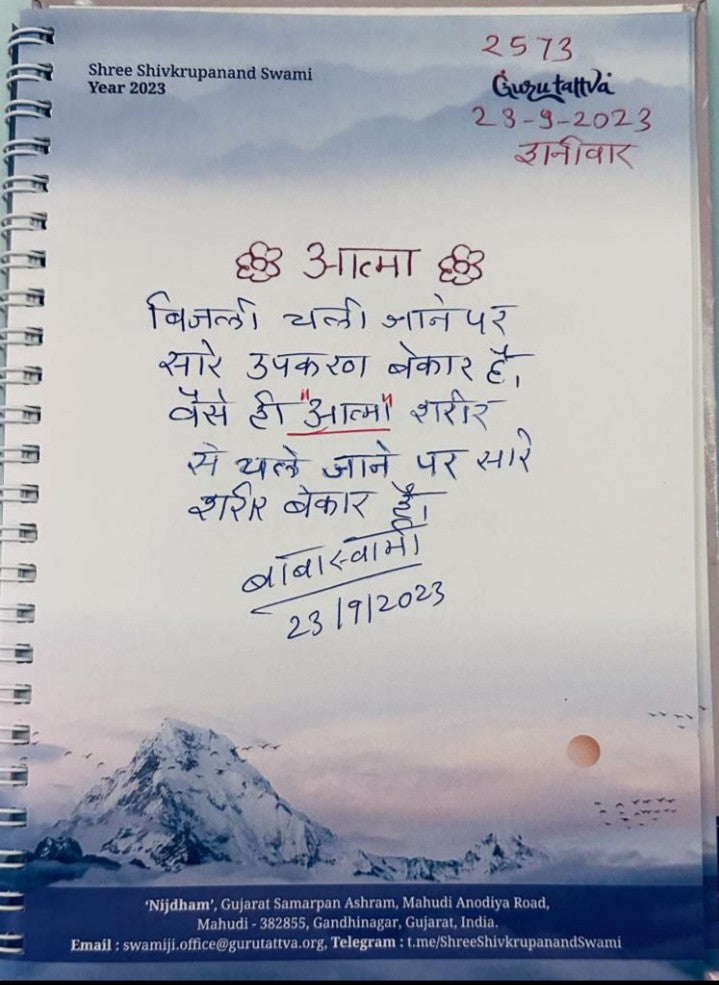 Shree Shivkrupanand Swami
Year 2023
2573
Gurutattva
23-9-2023
शनीवार
आत्मा
बिजली चली जाने पर
सारे उपकरण बेकार है,
वैसे ही "आत्मा" शरीर
से चले जाने पर सारे
शरीर बेकार है।
बाबास्वामी
23/9/2023
'Nijdham', Gujarat Samarpan Ashram, Mahudi Anodiya Road,
Mahudi - 382855, Gandhinagar, Gujarat, India.
Email : swamiji.office@gurutattva.org, Telegram : t.me/ShreeShivkrupanandSwami